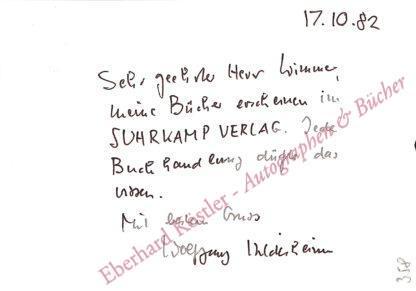 17.10.82
Sehr geehrter Herr Wimmer,
meine Bücher erscheinen im
SUHRKAMP VERLAG. Jede
Buchhandlung dürfte das
wissen.
Mit besten Gruss
Wolfgang Hildesheimer
Eberhard Köstler - Autographen & Bücher
358